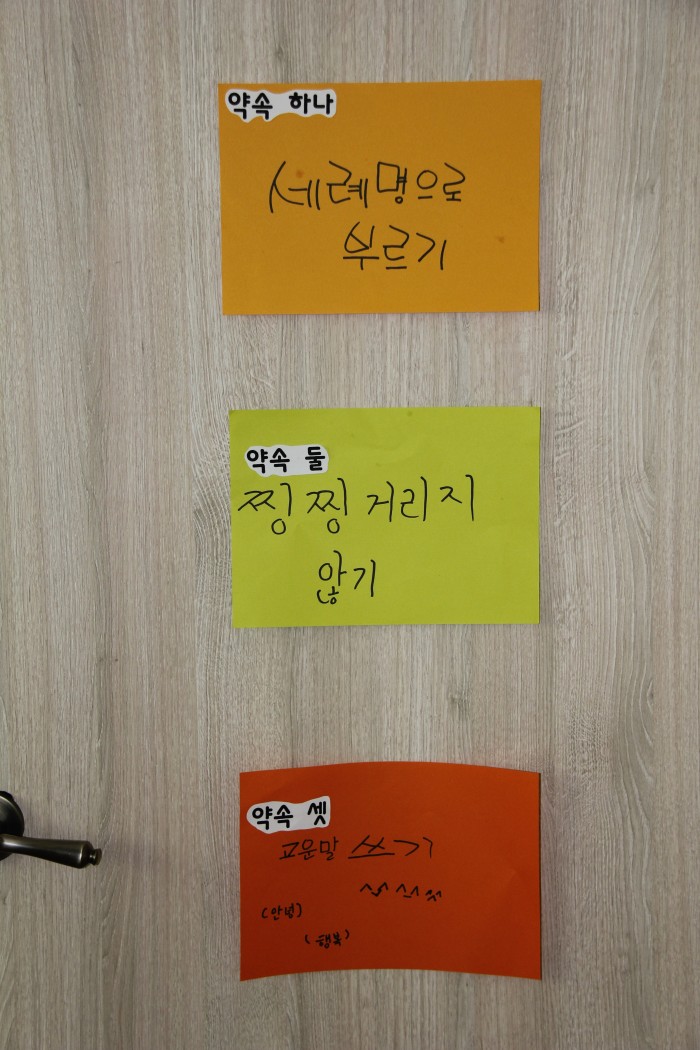 약속 하나
세례명으로
부르기
약속 둘
찡찡거리지
않기
약속 셋
고운말 쓰기
(안녕)
(행복)